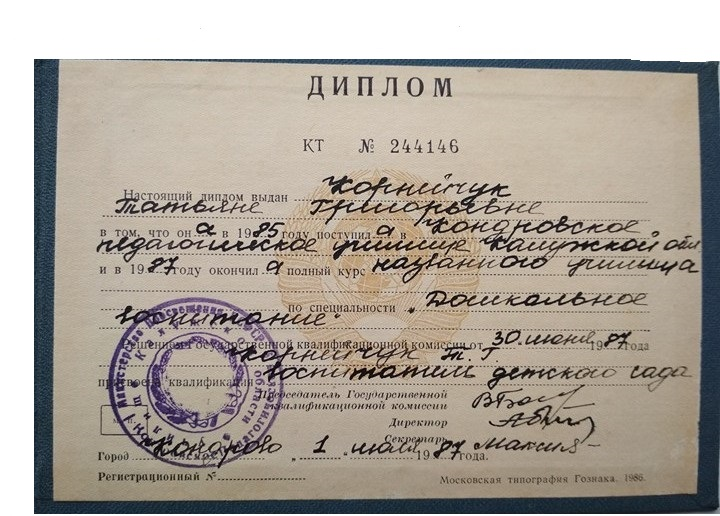 ДИПЛОМ
КТ № 244146
Настоящий диплом выдан Корнейчук
Татьяне Григорьевне
в том, что он а в 1985 году поступил а в Кондровское
педагогическое училище Калужской обл
и в 1987 году окончил а полный курс названного училища
по специальности „Дошкольное
воспитание"
Решением Государственной квалификационной комиссии от 30 июня 1987 года
Корнейчук Т. Г
присвоена квалификация воспитатель детского сада
Председатель Государственной
квалификационной комиссии
Директор
Секретарь
Город Кондрово „ 1 " июля 1987 года.
Регистрационный № Московская типография Гознака. 1986.